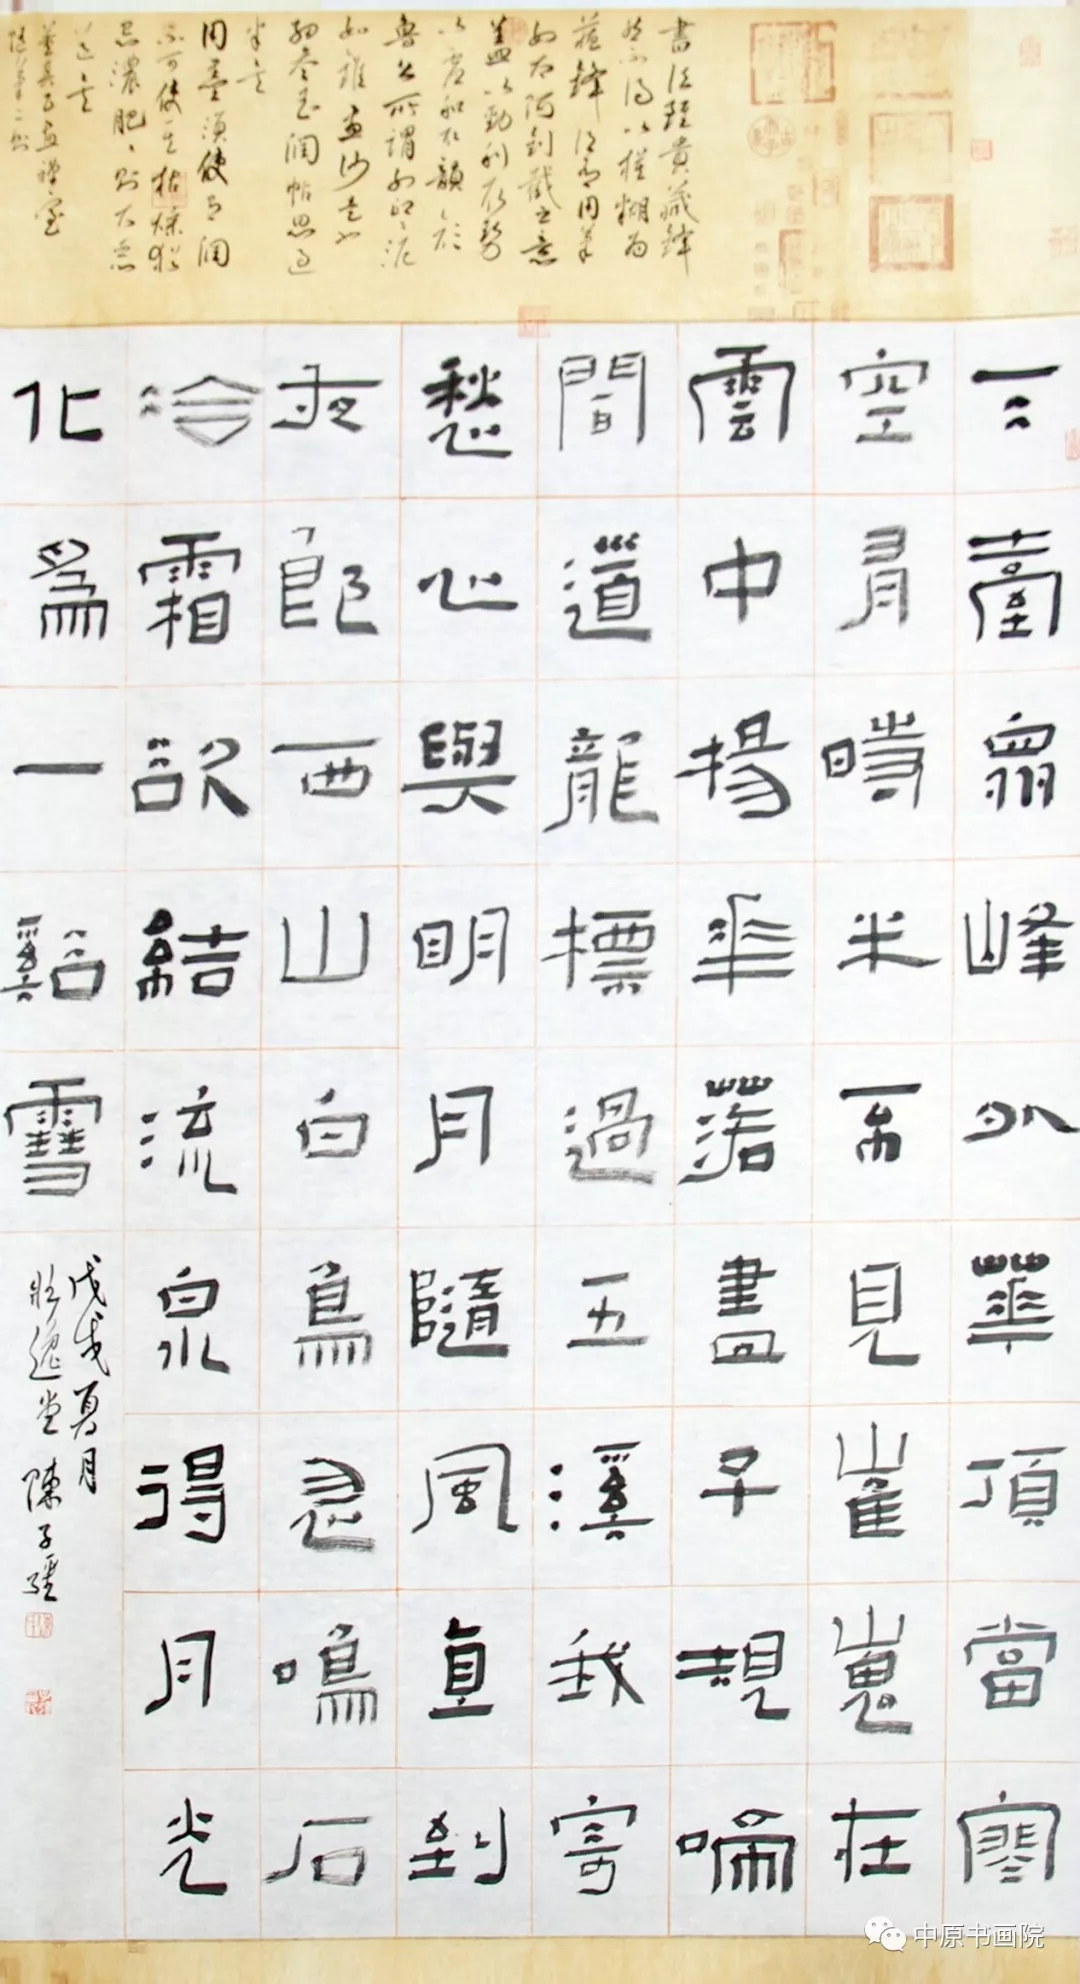 書法雖貴藏鋒
然不得以模糊為
藏鋒須有用筆
如太阿剸截之意
蓋以勁利取勢
以虛和取韻顏
魯公所謂如印印泥
如錐畫沙是也
細參玉潤帖思過
半矣
用墨須使有潤
不可使其枯燥猶
忌濃肥肥則大惡
道矣
董其昌畫禪室
隨筆二則
天臺眾峰外華頂當寒
空有時半不見崔嵬在
雲中楊花落盡子規啼
聞道龍標過五溪我寄
愁心與明月隨風直到
夜郎西山白鳥忽鳴石
冷霜欲結流泉得月光
化為一谿雪
戊戌夏月
逸堂陳子
中原书画院